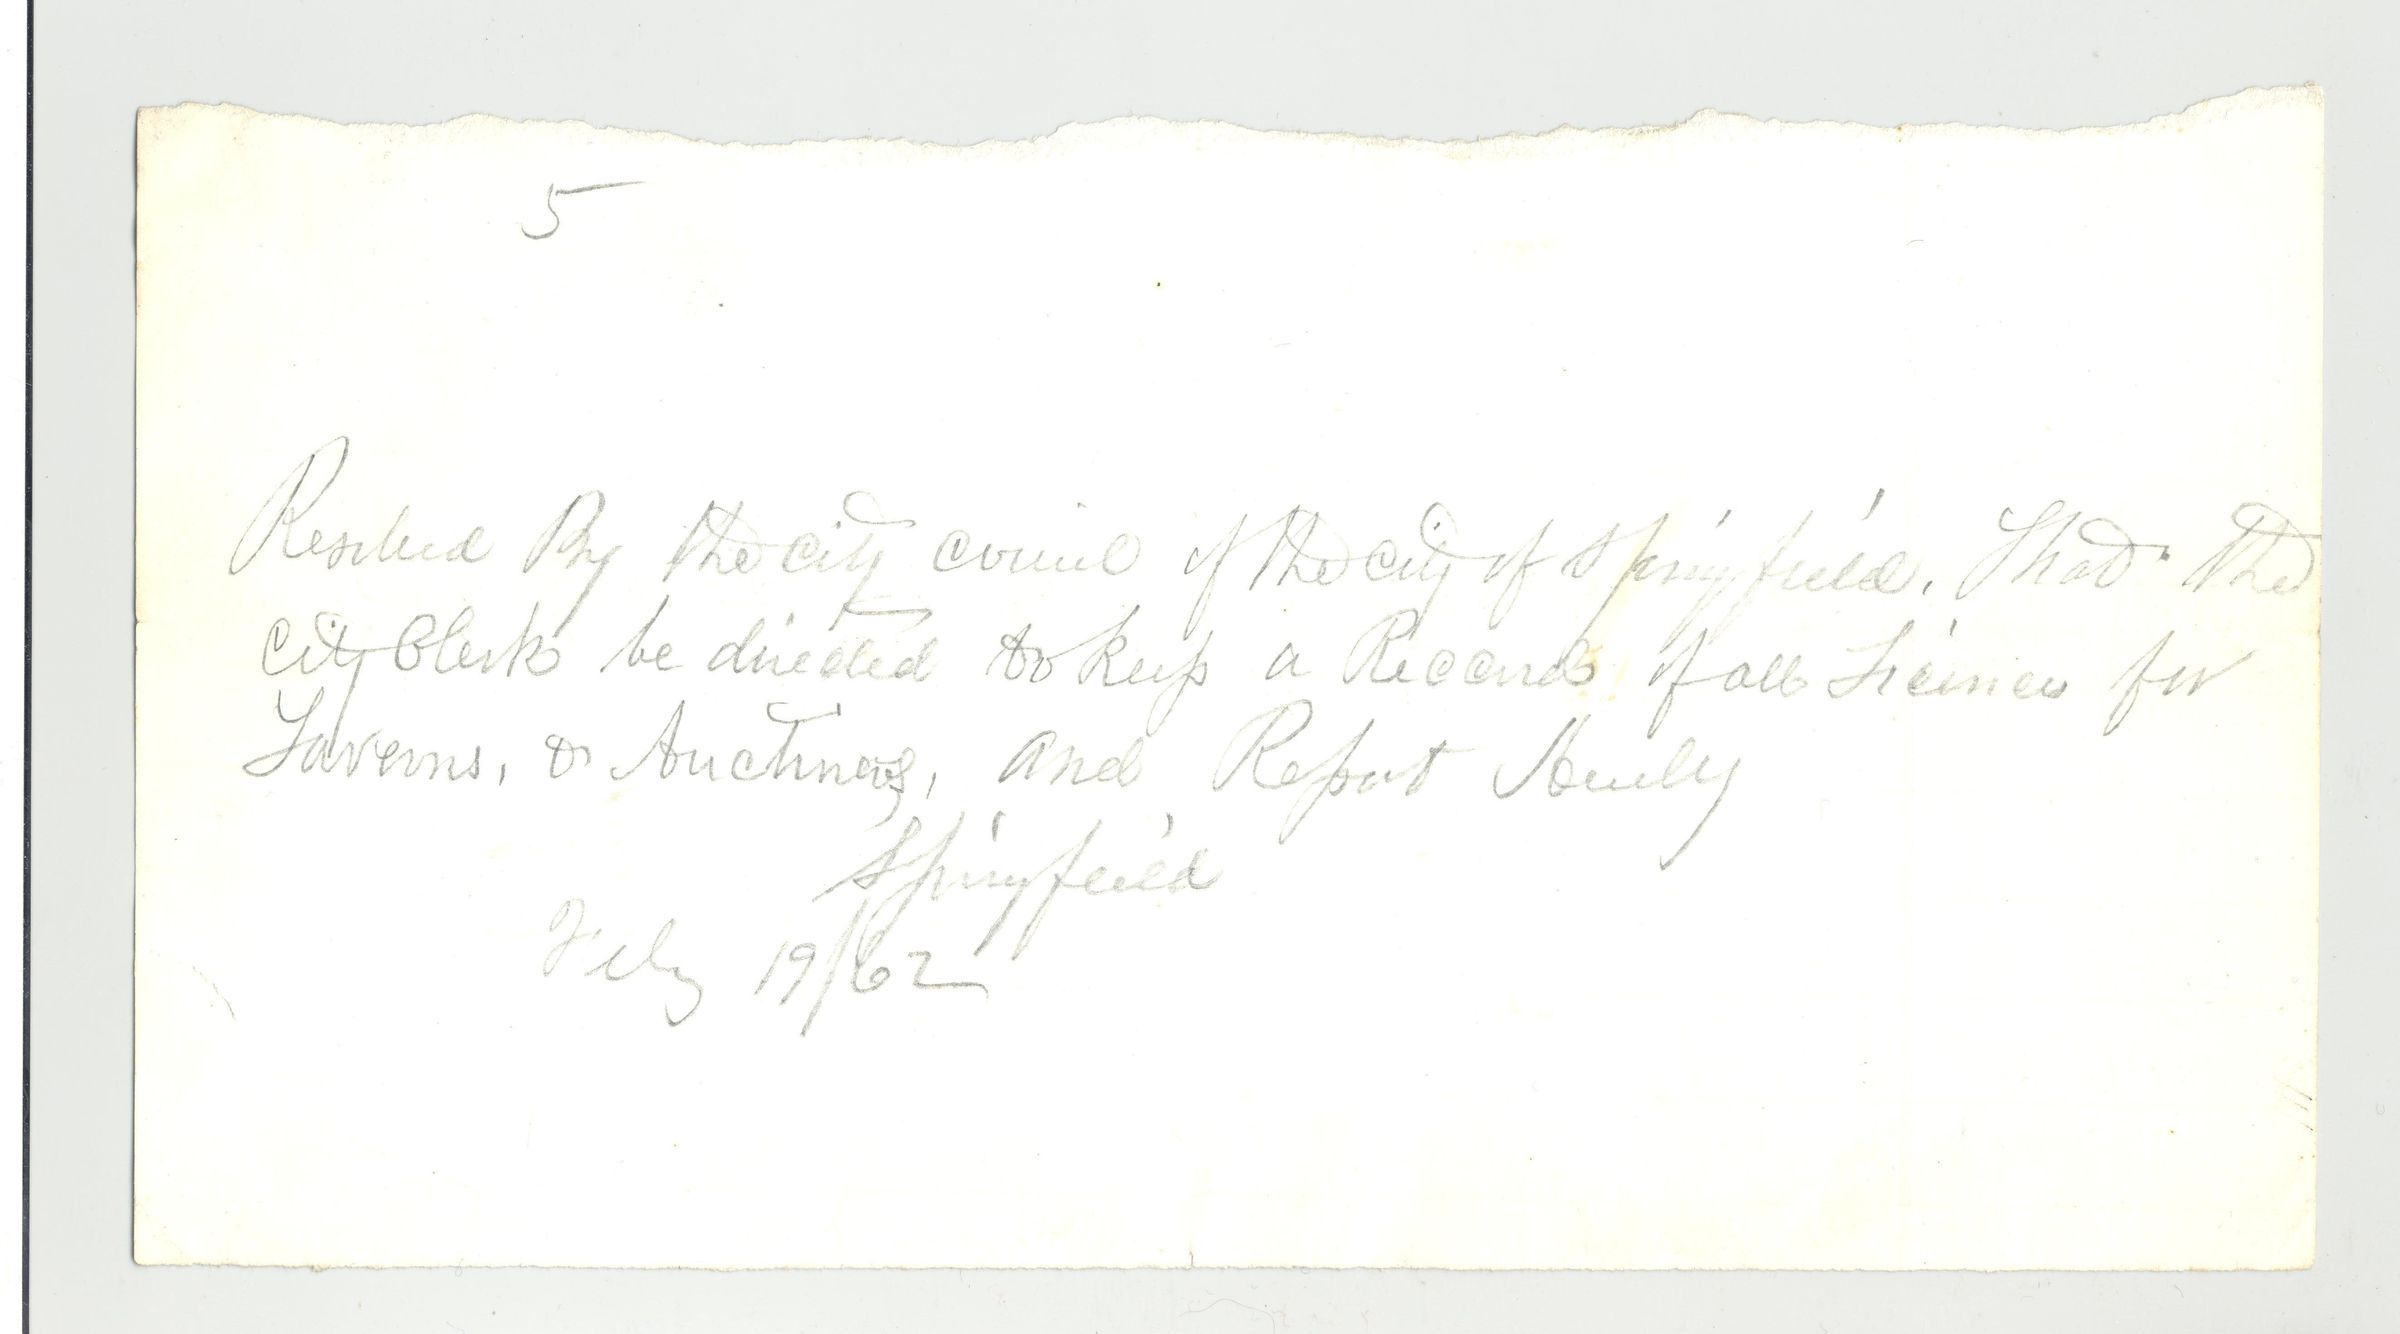 5
Resolved By the city council of the city of Springfield, That the
city Clerk be directed to keep a Record of all Licences for
Taverns, & Auctions, and Report
Springfield
Feby 19/62